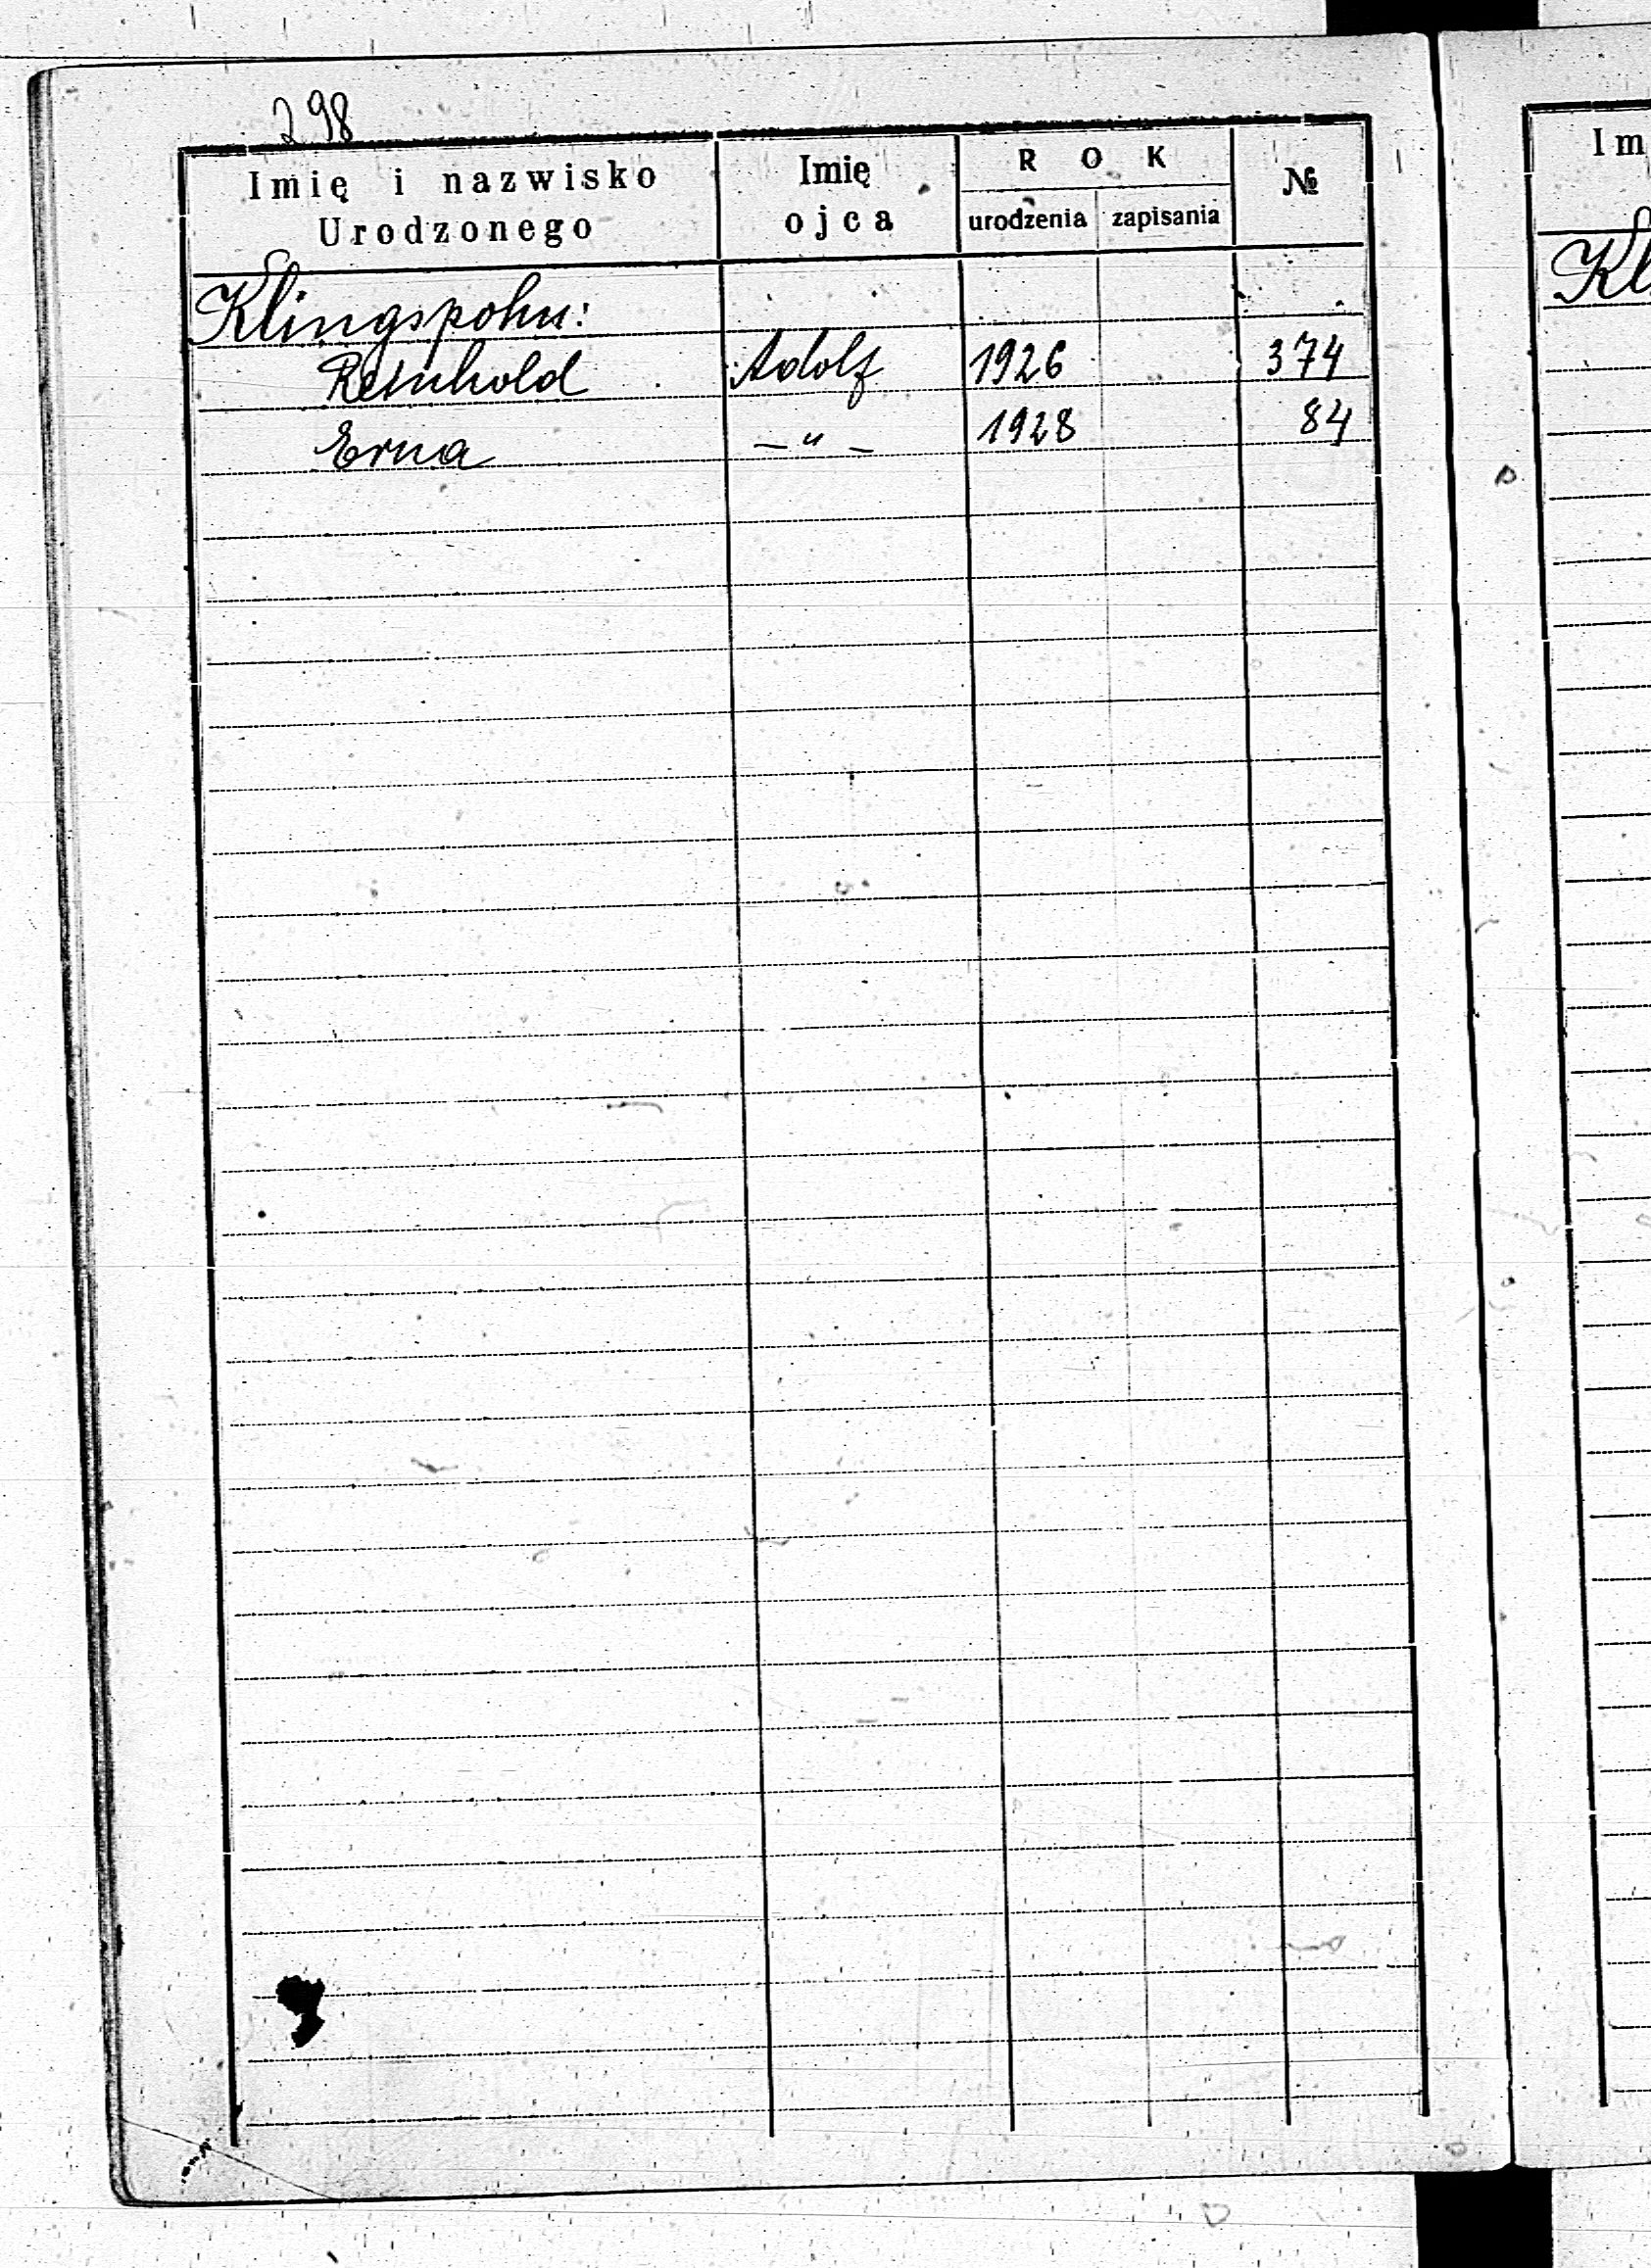 298
Imię i nazwisko Urodzonego
Imię ojca
ROK
urodzenia
zapisania
№
Klingspohn:
Reinhold Adolf 1926 374
Erna —"— 1928 84
Im
Kl